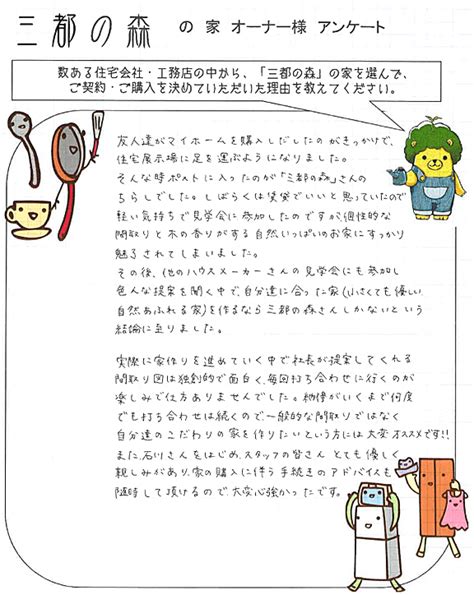 三都の森 の 家 オーナー様 アンケート
数ある住宅会社・工務店の中から、「三都の森」の家を選んで、
ご契約・ご購入を決めていただいた理由を教えてください。
友人達がマイホームを購入しだしたのがきっかけで、
住宅展示場に足を運ぶようになりました。
そんな時ポストに入ったのが「三都の森」さんの
ちらしでした。しばらくは賃貸でいいと思っていたので
軽い気持ちで見学会に参加したのですが、個性的な
間取りと木の香りがする自然いっぱいのお家にすっかり
魅了されてしまいました。
その後、他のハウスメーカーさんの見学会にも参加し
色んな提案を聞く中で、自分達に合った家(小さくても優しい、
自然あふれる家)を作るなら三都の森さんしかないという
結論に至りました。
実際に家作りを進めていく中で社長が提案してくれる
間取り図は独創的で面白く、毎回打ち合わせに行くのが
楽しみで仕方ありませんでした。納得がいくまで何度
でも打ち合わせは続くので一般的な間取りではなく
自分達のこだわりの家を作りたいという方には大変オススメです!!
また、石川さんをはじめ、スタッフの皆さん とても優しく
親しみがあり、家の購入に伴う手続きのアドバイスも
随時して頂けるので、大変心強かったです。